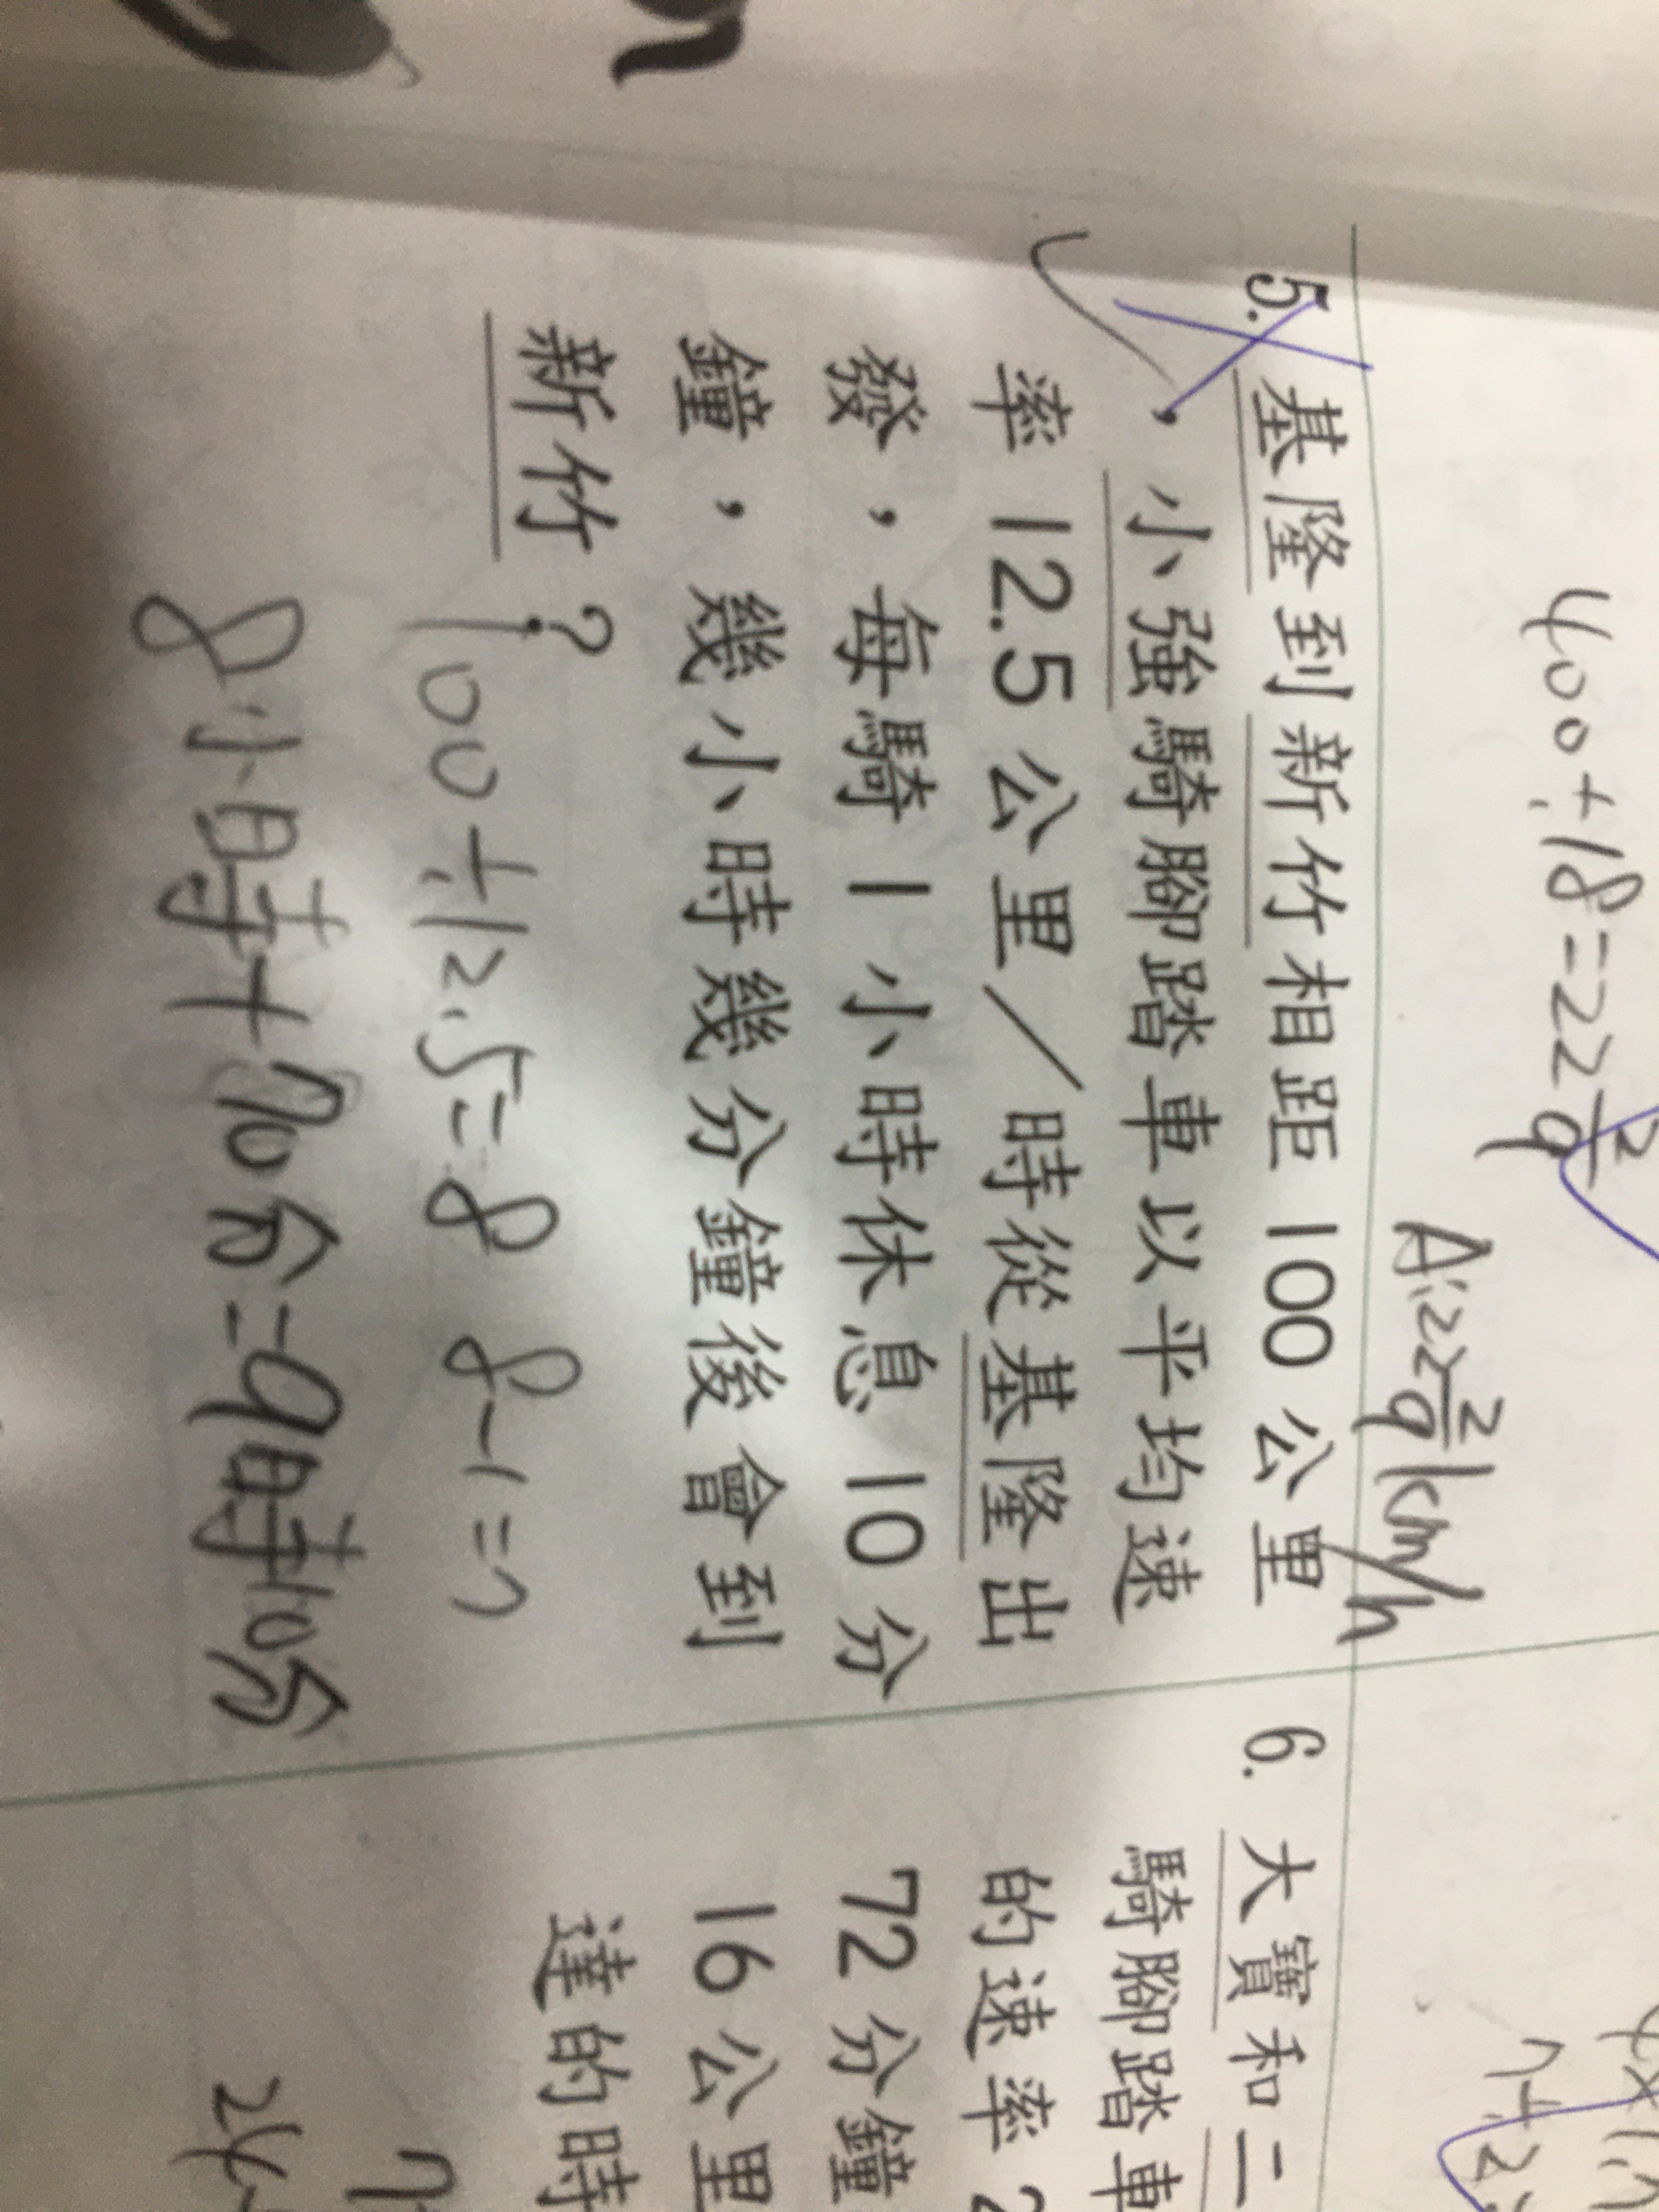 400÷18=22 2/9
A:22 2/9 km/h
5. 基隆到新竹相距 100 公里
，小強騎腳踏車以平均速
率 12.5 公里／時從基隆出
發，每騎 1 小時休息 10 分
鐘，幾小時幾分鐘後會到
新竹？
100÷12.5=8 8-1=7
8小時+70分=9時10分
6. 大寶和二
騎腳踏車
的速率 2
72 分鐘
16 公里
達的時